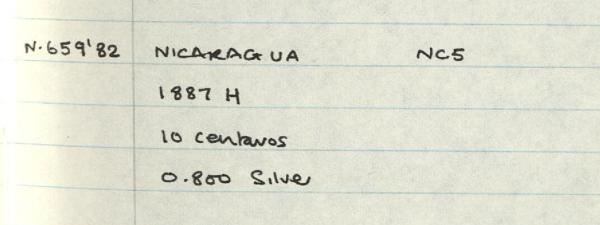 N.659'82 NICARAGUA NC5
1887 H
10 centavos
0.800 Silver